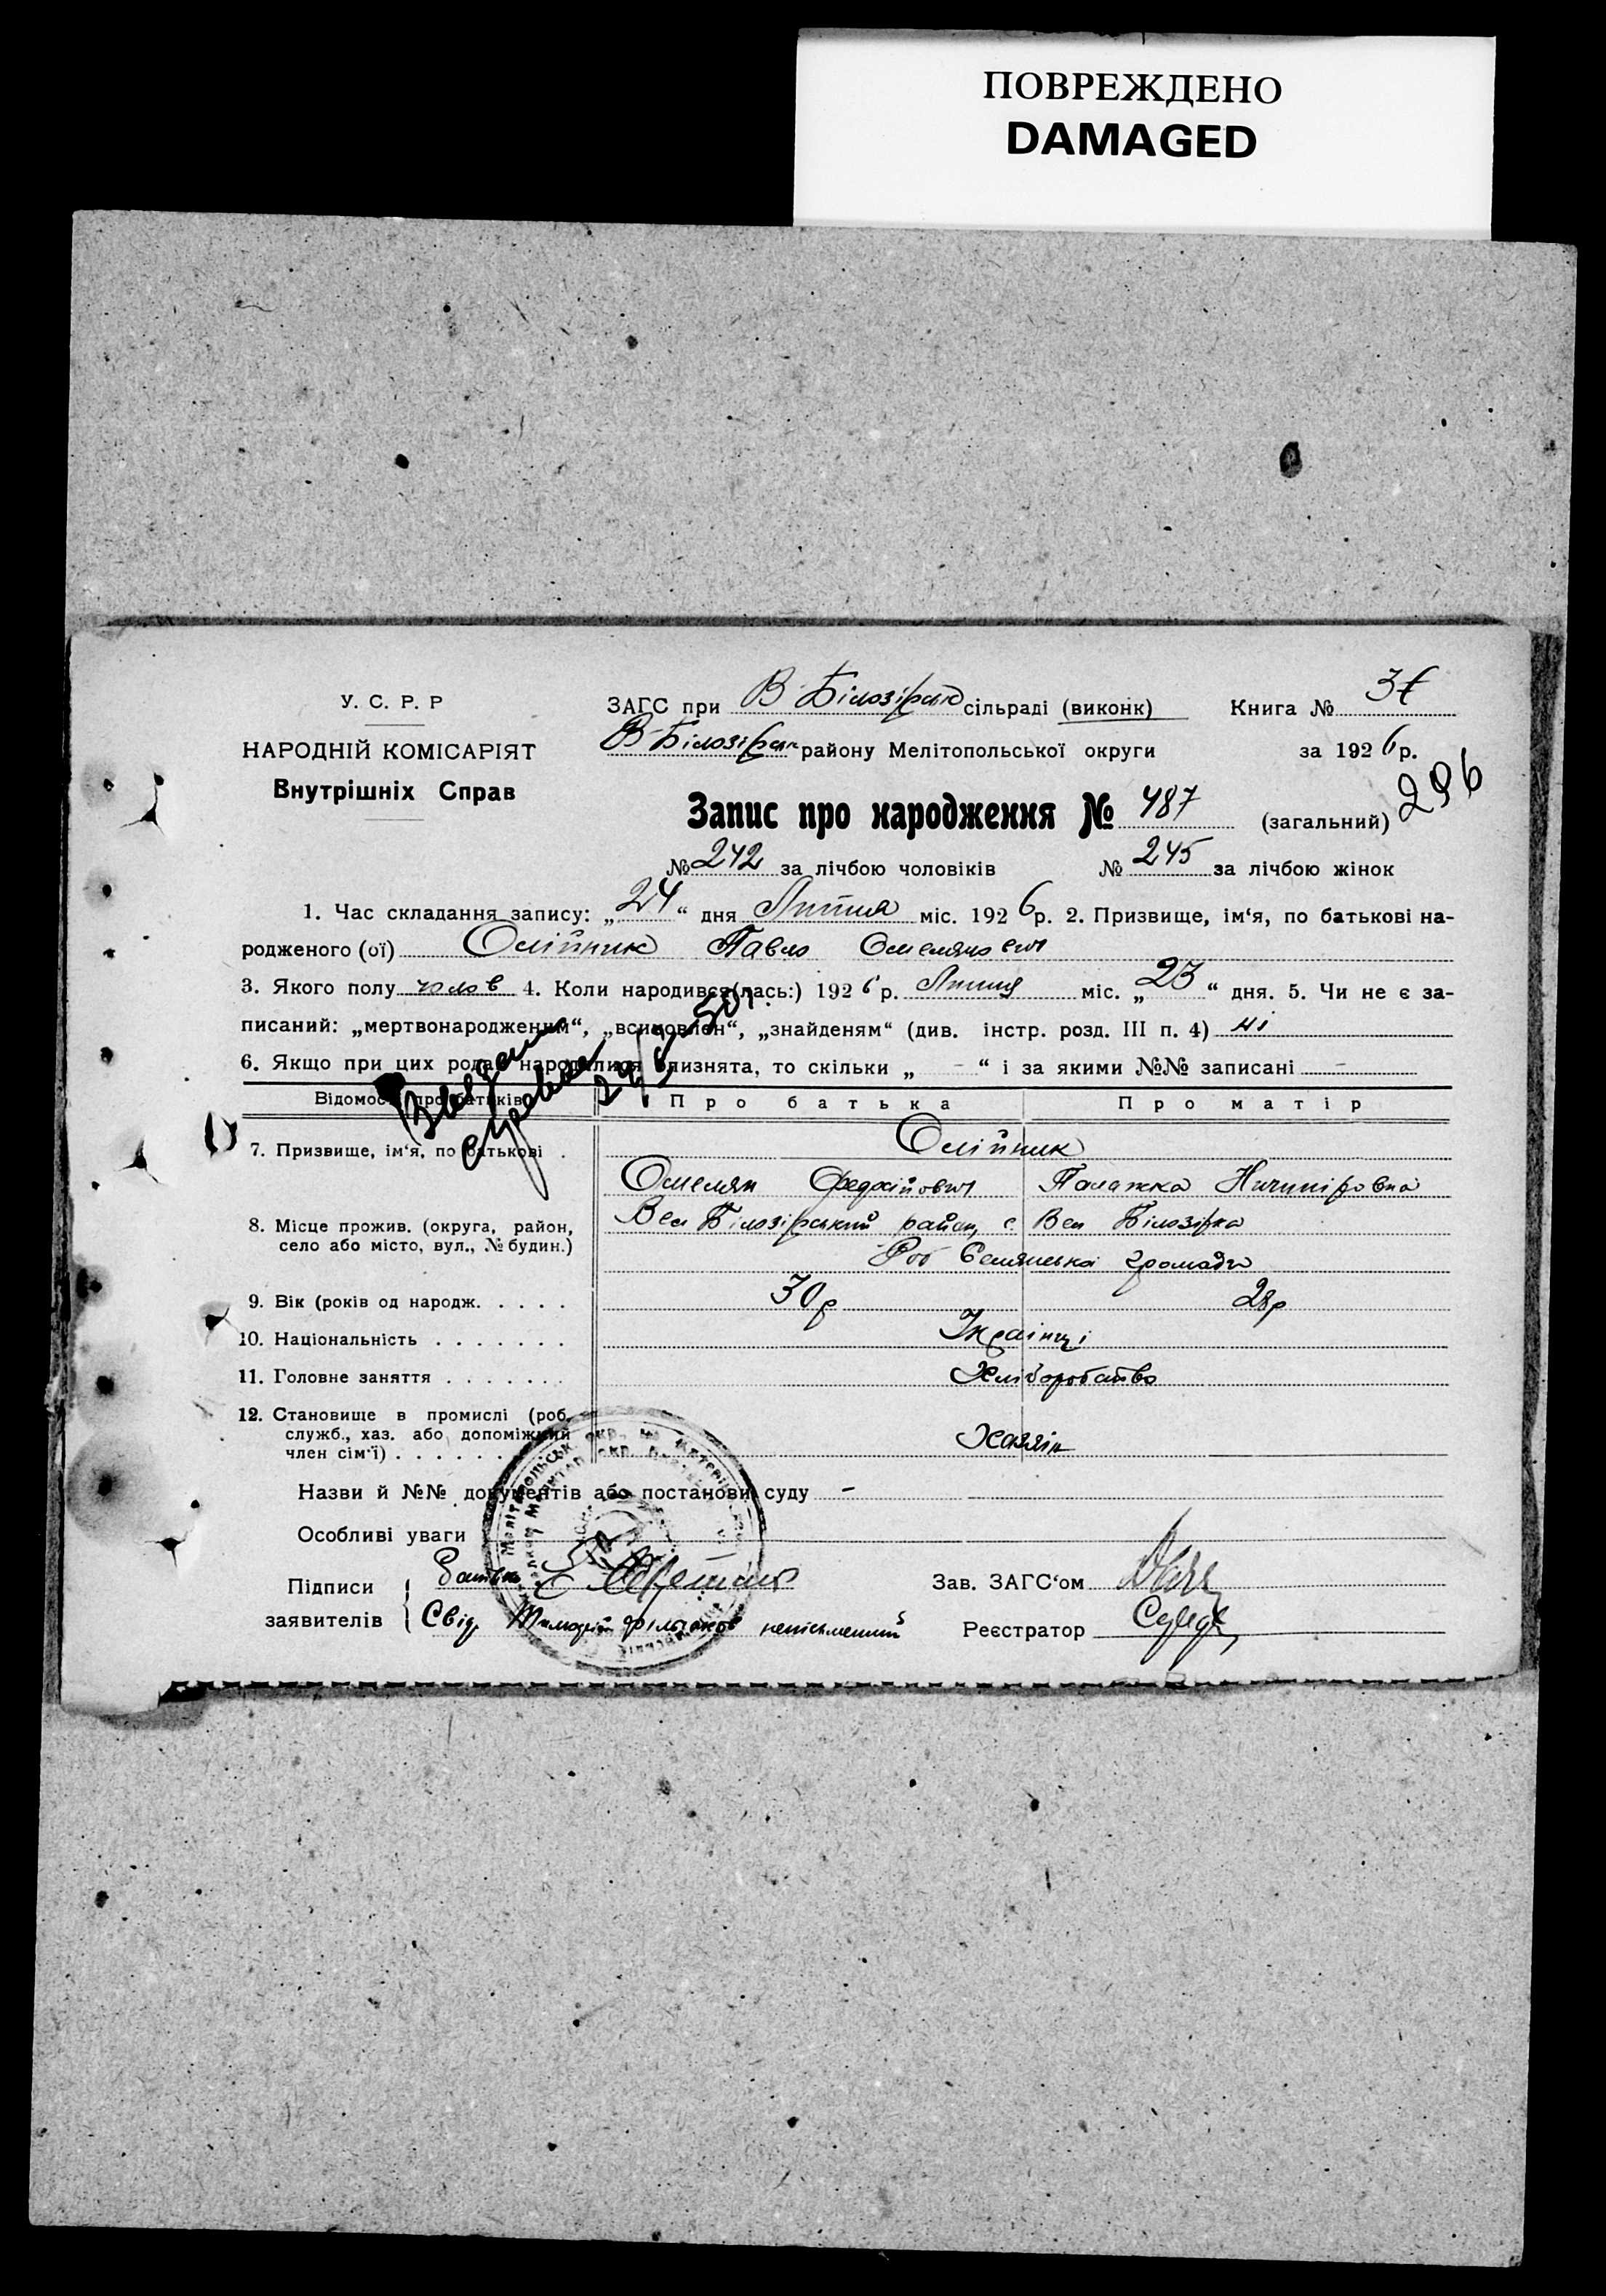 ПОВРЕЖДЕНО
DAMAGED
У. С. Р. Р
НАРОДНІЙ КОМІСАРІЯТ
Внутрішніх Справ
ЗАГС при В-Білозірськ сільраді (виконк) Книга №
В-Білозірськ району Мелітопольської округи за 1926 р.
296
Запис про народження № 487 (загальний)
№ 242 за лічбою чоловіків № 245 за лічбою жінок
1. Час складання запису: „24“ дня Липня міс. 1926 р. 2. Призвище, ім‘я, по батькові на-
родженого (ої) Олійник Павло Омелянович
3. Якого полу чолов 4. Коли народився(лась:) 1926 р. Липня міс. „23“ дня. 5. Чи не є за-
писаний: „мертвонародженим“, „всиновлен“, „знайденям“ (див. інстр. розд. III п. 4) ні
6. Якщо при цих родах народилися близнята, то скільки „ - “ і за якими №№ записані -
Відомости про батьків Про батька Про матір
7. Призвище, ім‘я, по батькові . Олійник
Омелян Федосійович Палажка Ничипіровна
8. Місце прожив. (округа, район, Вел Білозірський район, с. Вел Білозірка
село або місто, вул., № будин.) Селянська громада
9. Вік (років од народж. . . . . 30 р 28 р
10. Національність . . . . . . . Українці
11. Головне заняття . . . . . . . Хліборобство
12. Становище в промислі (роб.
служб., хаз. або допоміжний
член сім‘ї) . . . . . . Хазяїн
Назви й №№ документів або постанови суду -
Особливі уваги
Підписи Батько Зав. ЗАГС‘ом
заявителів Свід. неписьменний Реєстратор